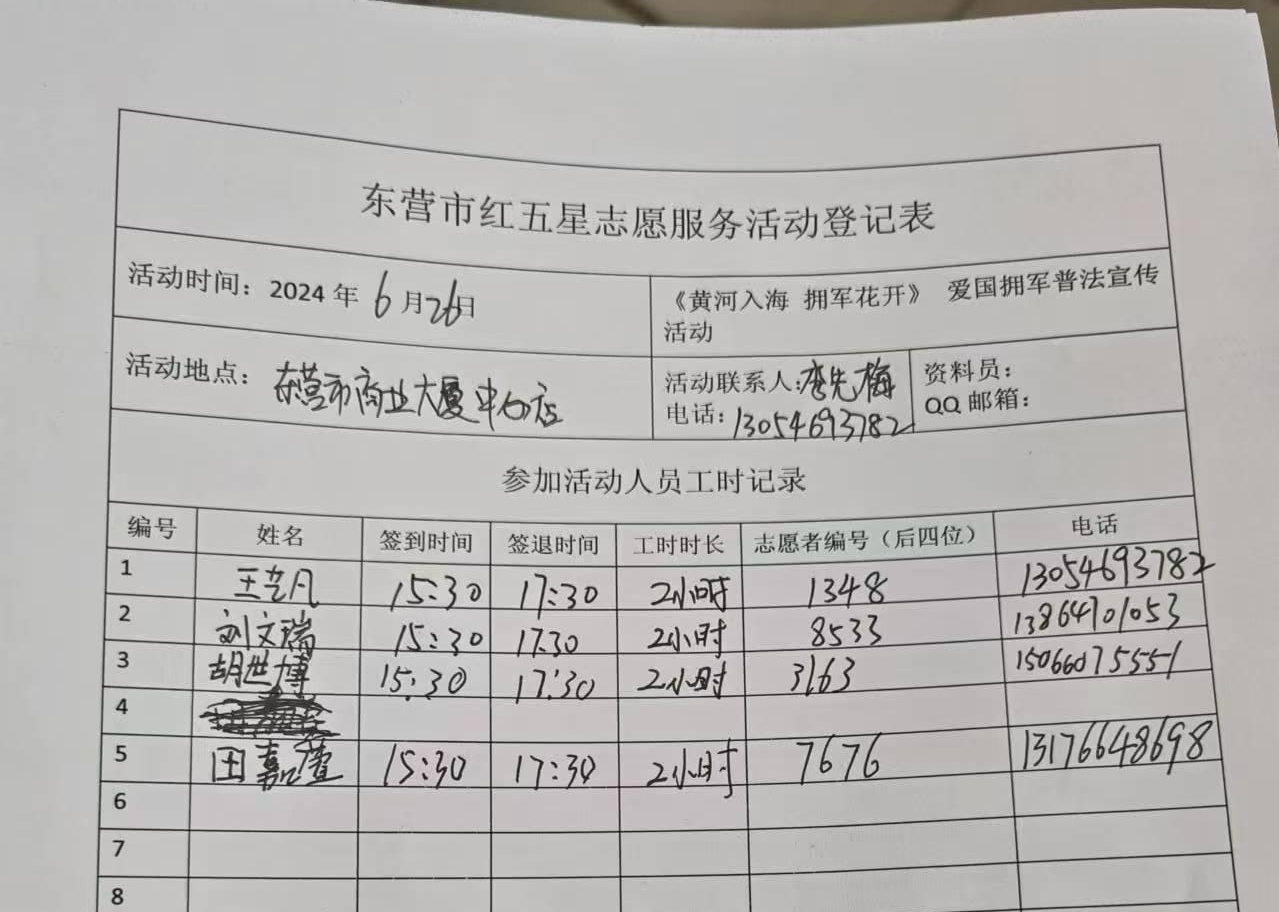 东营市红五星志愿服务活动登记表
活动时间：2024 年 6 月 26 日
《黄河入海 拥军花开》 爱国拥军普法宣传
活动
活动地点： 东营市商业大厦中心店
活动联系人：李先梅
电话：13054693782
资料员：
QQ 邮箱：
参加活动人员工时记录
编号 姓名 签到时间 签退时间 工时时长 志愿者编号（后四位） 电话
1 王艺凡 15:30 17:30 2小时 1348 13054693782
2 刘文瑞 15:30 17:30 2小时 8533 13864701053
3 胡世博 15:30 17:30 2小时 3163 15066075551
4
5 田嘉萱 15:30 17:30 2小时 7676 13176648698
6
7
8